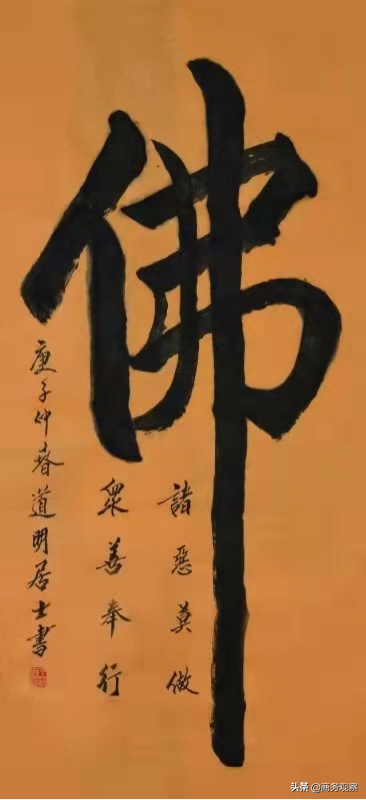 佛
諸惡莫做
衆善奉行
庚子仲春道明居士書
头条 @商务观察